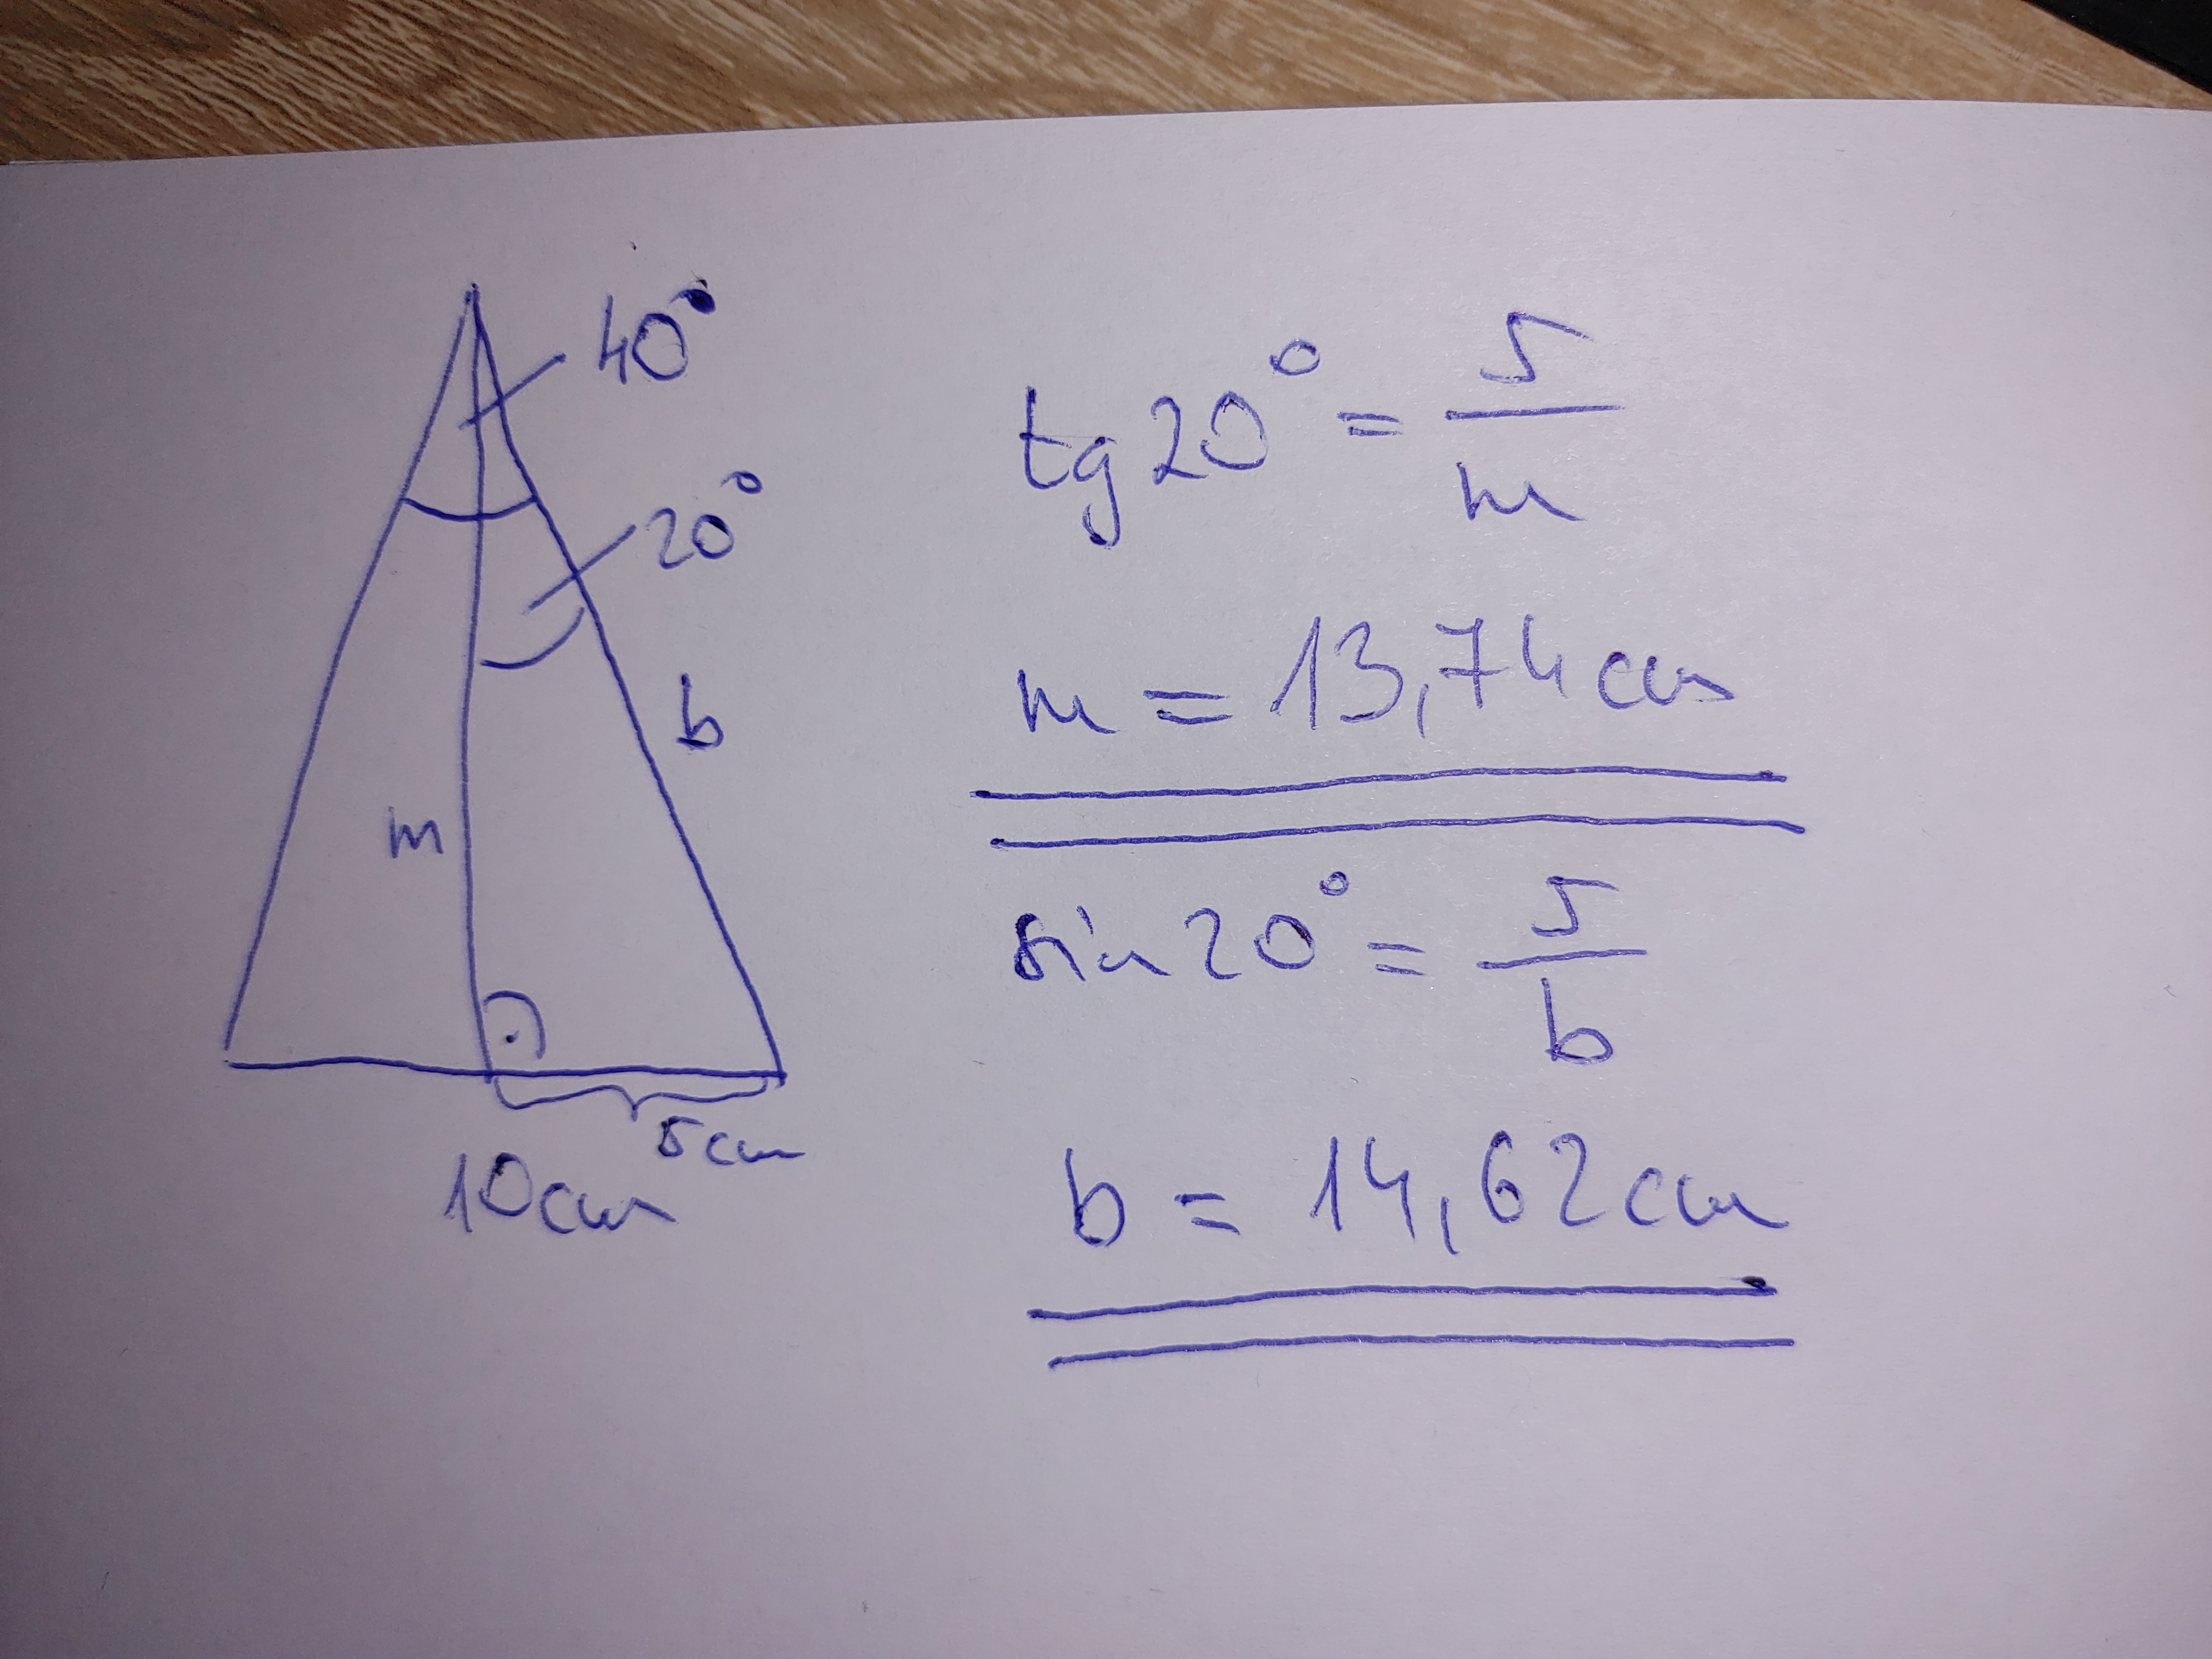 40°
20°
b
m
5cm
10cm
tg 20° = 5/m
m = 13,74 cm
sin 20° = 5/b
b = 14,62 cm